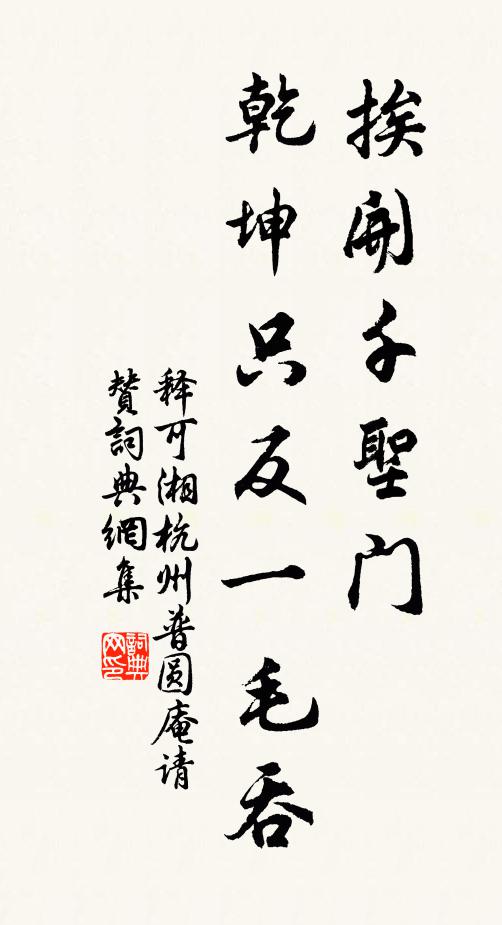 挨開千聖門
乾坤只反一毛吞
释可湘杭州普圆庵请
贊詞典網集
詞典网印